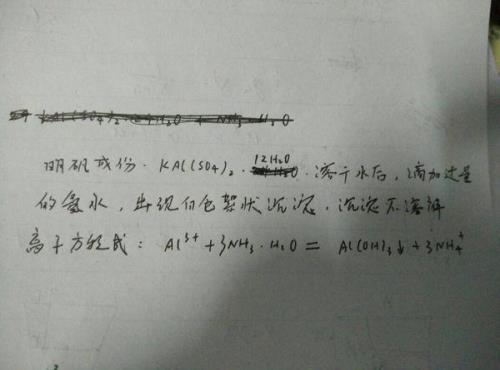 明矾成份·KAl(SO4)2·12H2O·溶于水后,滴加过量
的氨水,出现白色絮状沉淀.沉淀不溶解
离子方程式: Al3+ + 3NH3·H2O = Al(OH)3↓ + 3NH4+